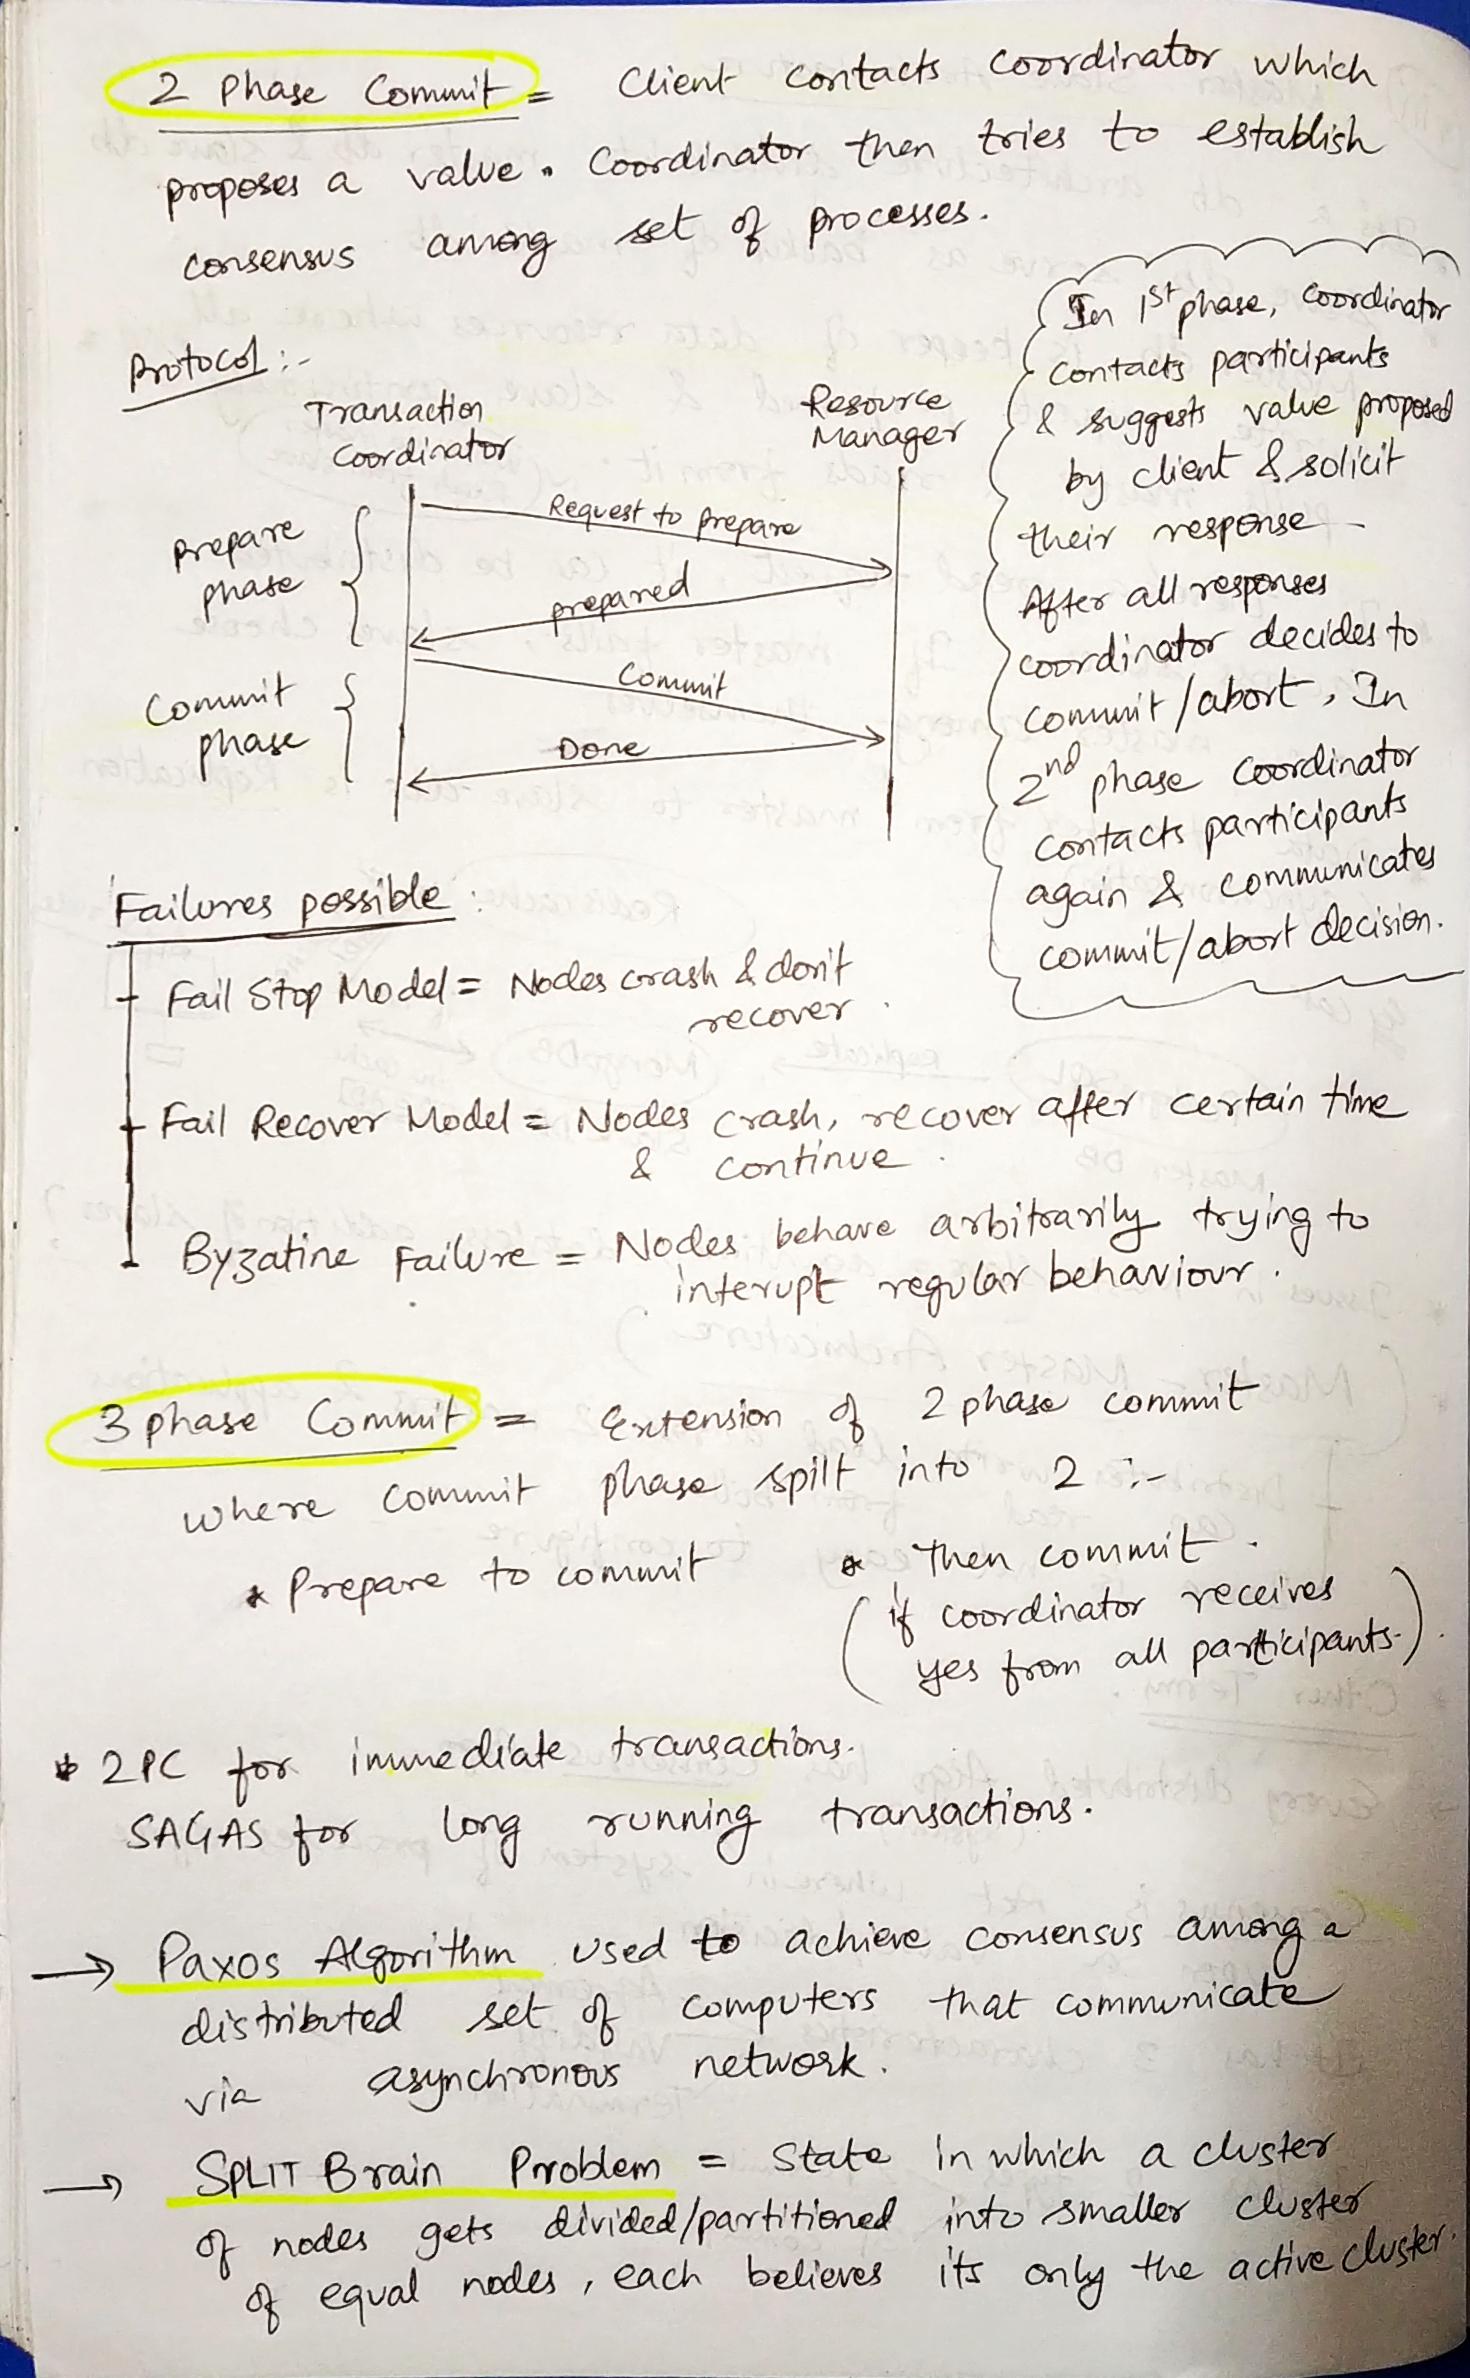 2 Phase Commit = Client contacts coordinator which
proposes a value. Coordinator then tries to establish
consensus among set of processes.
Protocol :-
Transaction
Coordinator
Resource
Manager
Prepare
phase
Request to prepare
prepared
Commit
phase
Commit
Done
In 1st phase, Coordinator
contacts participants
& suggests value proposed
by client & solicit
their response
After all responses
coordinator decides to
commit/abort, In
2nd phase Coordinator
contacts participants
again & communicates
commit/abort decision.
Failures possible :
Fail Stop Model = Nodes crash & don't
recover.
Fail Recover Model = Nodes crash, recover after certain time
& continue.
Byzatine Failure = Nodes behave arbitrarily trying to
interupt regular behaviour.
3 phase Commit = Extension of 2 phase commit
where commit phase spilt into 2 :-
* Prepare to commit * Then commit.
(if coordinator receives
yes from all participants.).
* 2PC for immediate transactions.
SAGAS for long running transactions.
→ Paxos Algorithm used to achieve consensus among a
distributed set of computers that communicate
via asynchronous network.
→ SPLIT Brain Problem = State in which a cluster
of nodes gets divided/partitioned into smaller cluster
of equal nodes, each believes its only the active cluster.